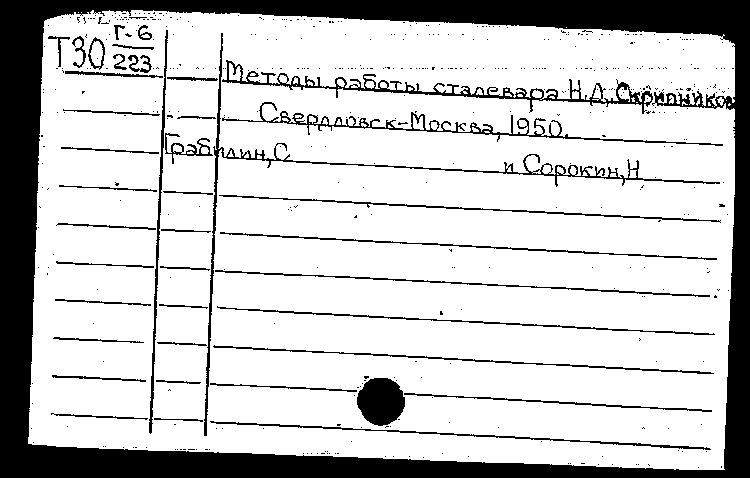 Т30 Г-6
223
Методы работы сталевара Н.Д. Скрипникова
Свердловск-Москва, 1950.
Грабилин, С и Сорокин, Н